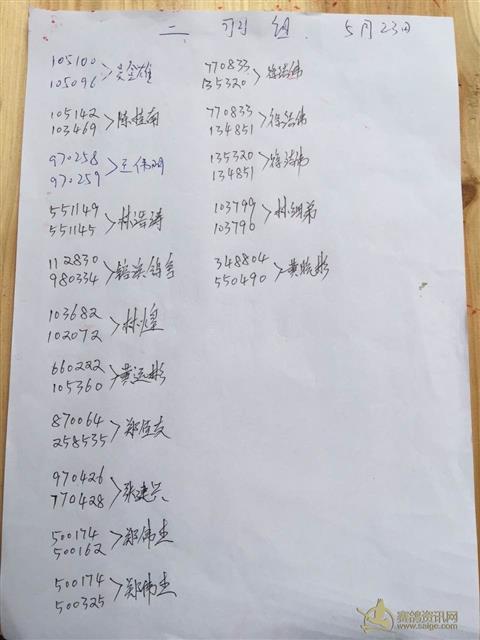 二 组 5月23日
105100
105096 > 吴金雄
105142
103469 > 陈桂南
970258
970259 > 王伟明
551149
551145 > 林浩涛
112830
980334 >
103682
102072 > 林煌
660222
105360 > 黄远彬
870064
258535 > 郑
970426
770428 > 张建兴
500174
500162 > 郑伟杰
500174
500325 > 郑伟杰
770833
135320 > 徐洁伟
770833
134851 > 徐洁伟
135320
134851 > 徐洁伟
103799
103796 > 林细弟
348804
550490 > 黄晓彬
赛鸽资讯网
www.saige.com